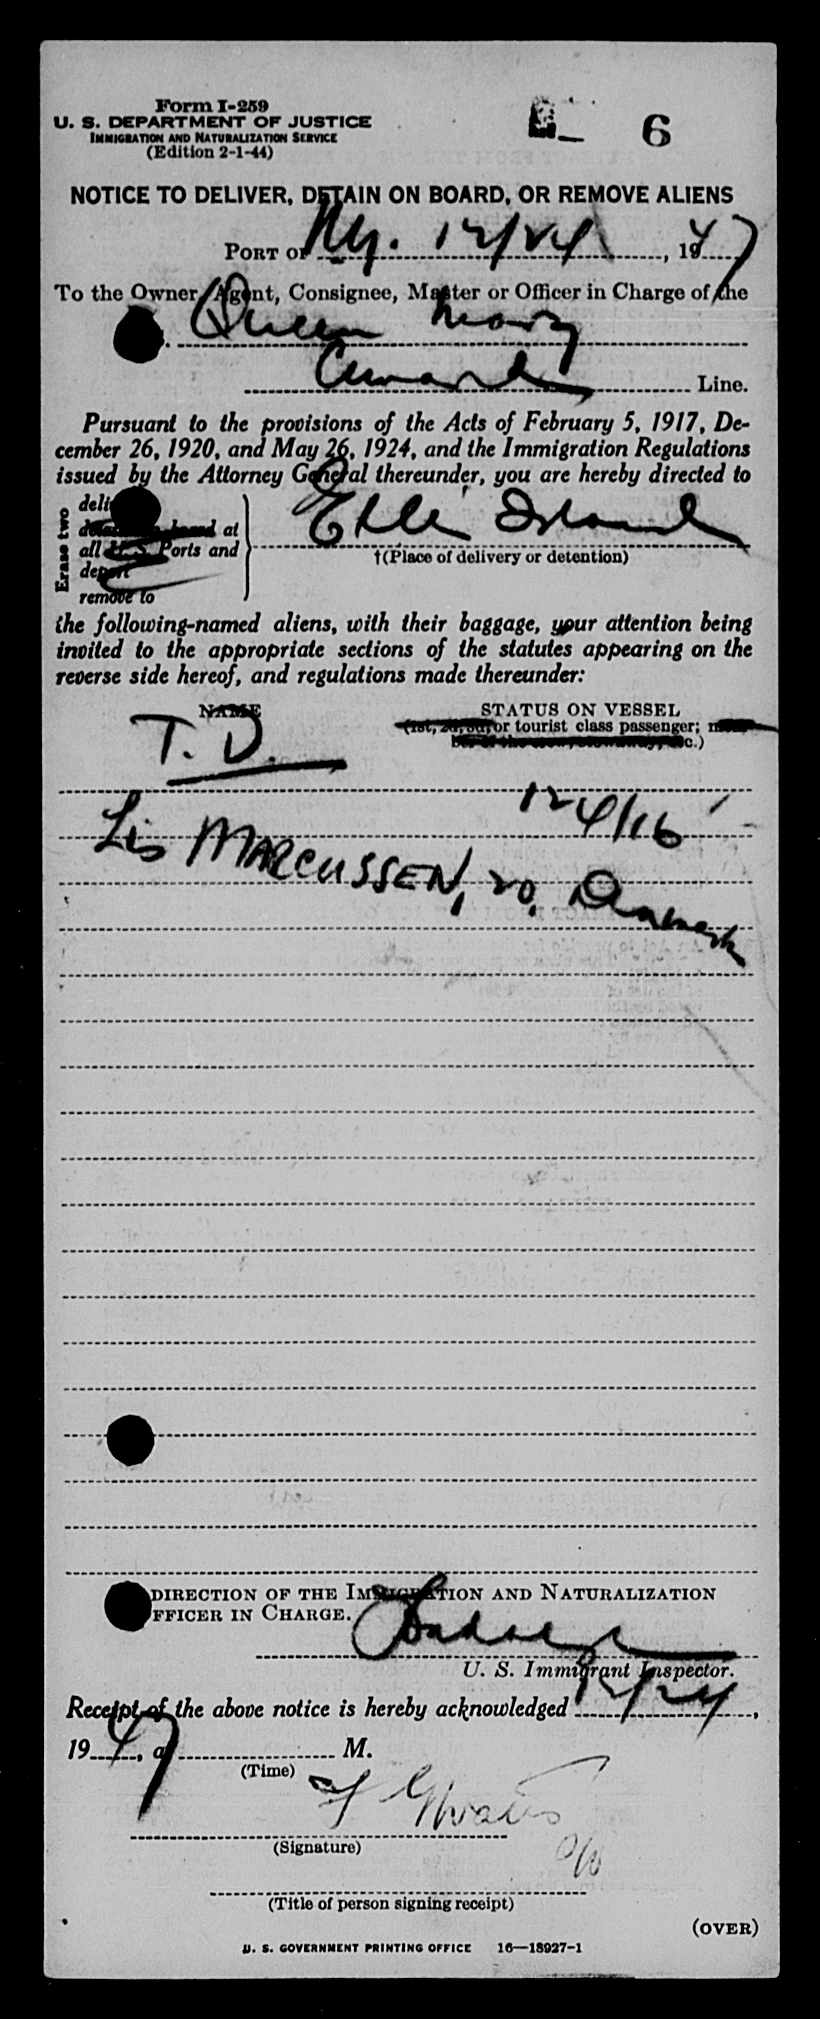 Form I-259
U. S. DEPARTMENT OF JUSTICE
IMMIGRATION AND NATURALIZATION SERVICE
(Edition 2-1-44)
6
NOTICE TO DELIVER, DETAIN ON BOARD, OR REMOVE ALIENS
PORT OF N.Y. 12/24, 1947
To the Owner, Agent, Consignee, Master or Officer in Charge of the
Queen Mary
Cunard Line.
Pursuant to the provisions of the Acts of February 5, 1917, De-
cember 26, 1920, and May 26, 1924, and the Immigration Regulations
issued by the Attorney General thereunder, you are hereby directed to
Erase two
deli
detain on board at
all U. S. Ports and
deport
remove to
Ellis Island
†(Place of delivery or detention)
the following-named aliens, with their baggage, your attention being
invited to the appropriate sections of the statutes appearing on the
reverse side hereof, and regulations made thereunder:
NAME
STATUS ON VESSEL
(1st, 2d, 3d, or tourist class passenger; mem-
ber of the crew, stowaway, etc.)
T. D.
124/16
Lis MARCUSSEN, 20, Denmark
DIRECTION OF THE IMMIGRATION AND NATURALIZATION
FFICER IN CHARGE.
U. S. Immigrant Inspector.
Receipt of the above notice is hereby acknowledged 12/24,
1947, a M.
(Time)
(Signature)
(Title of person signing receipt)
(OVER)
U. S. GOVERNMENT PRINTING OFFICE 16—18927-1